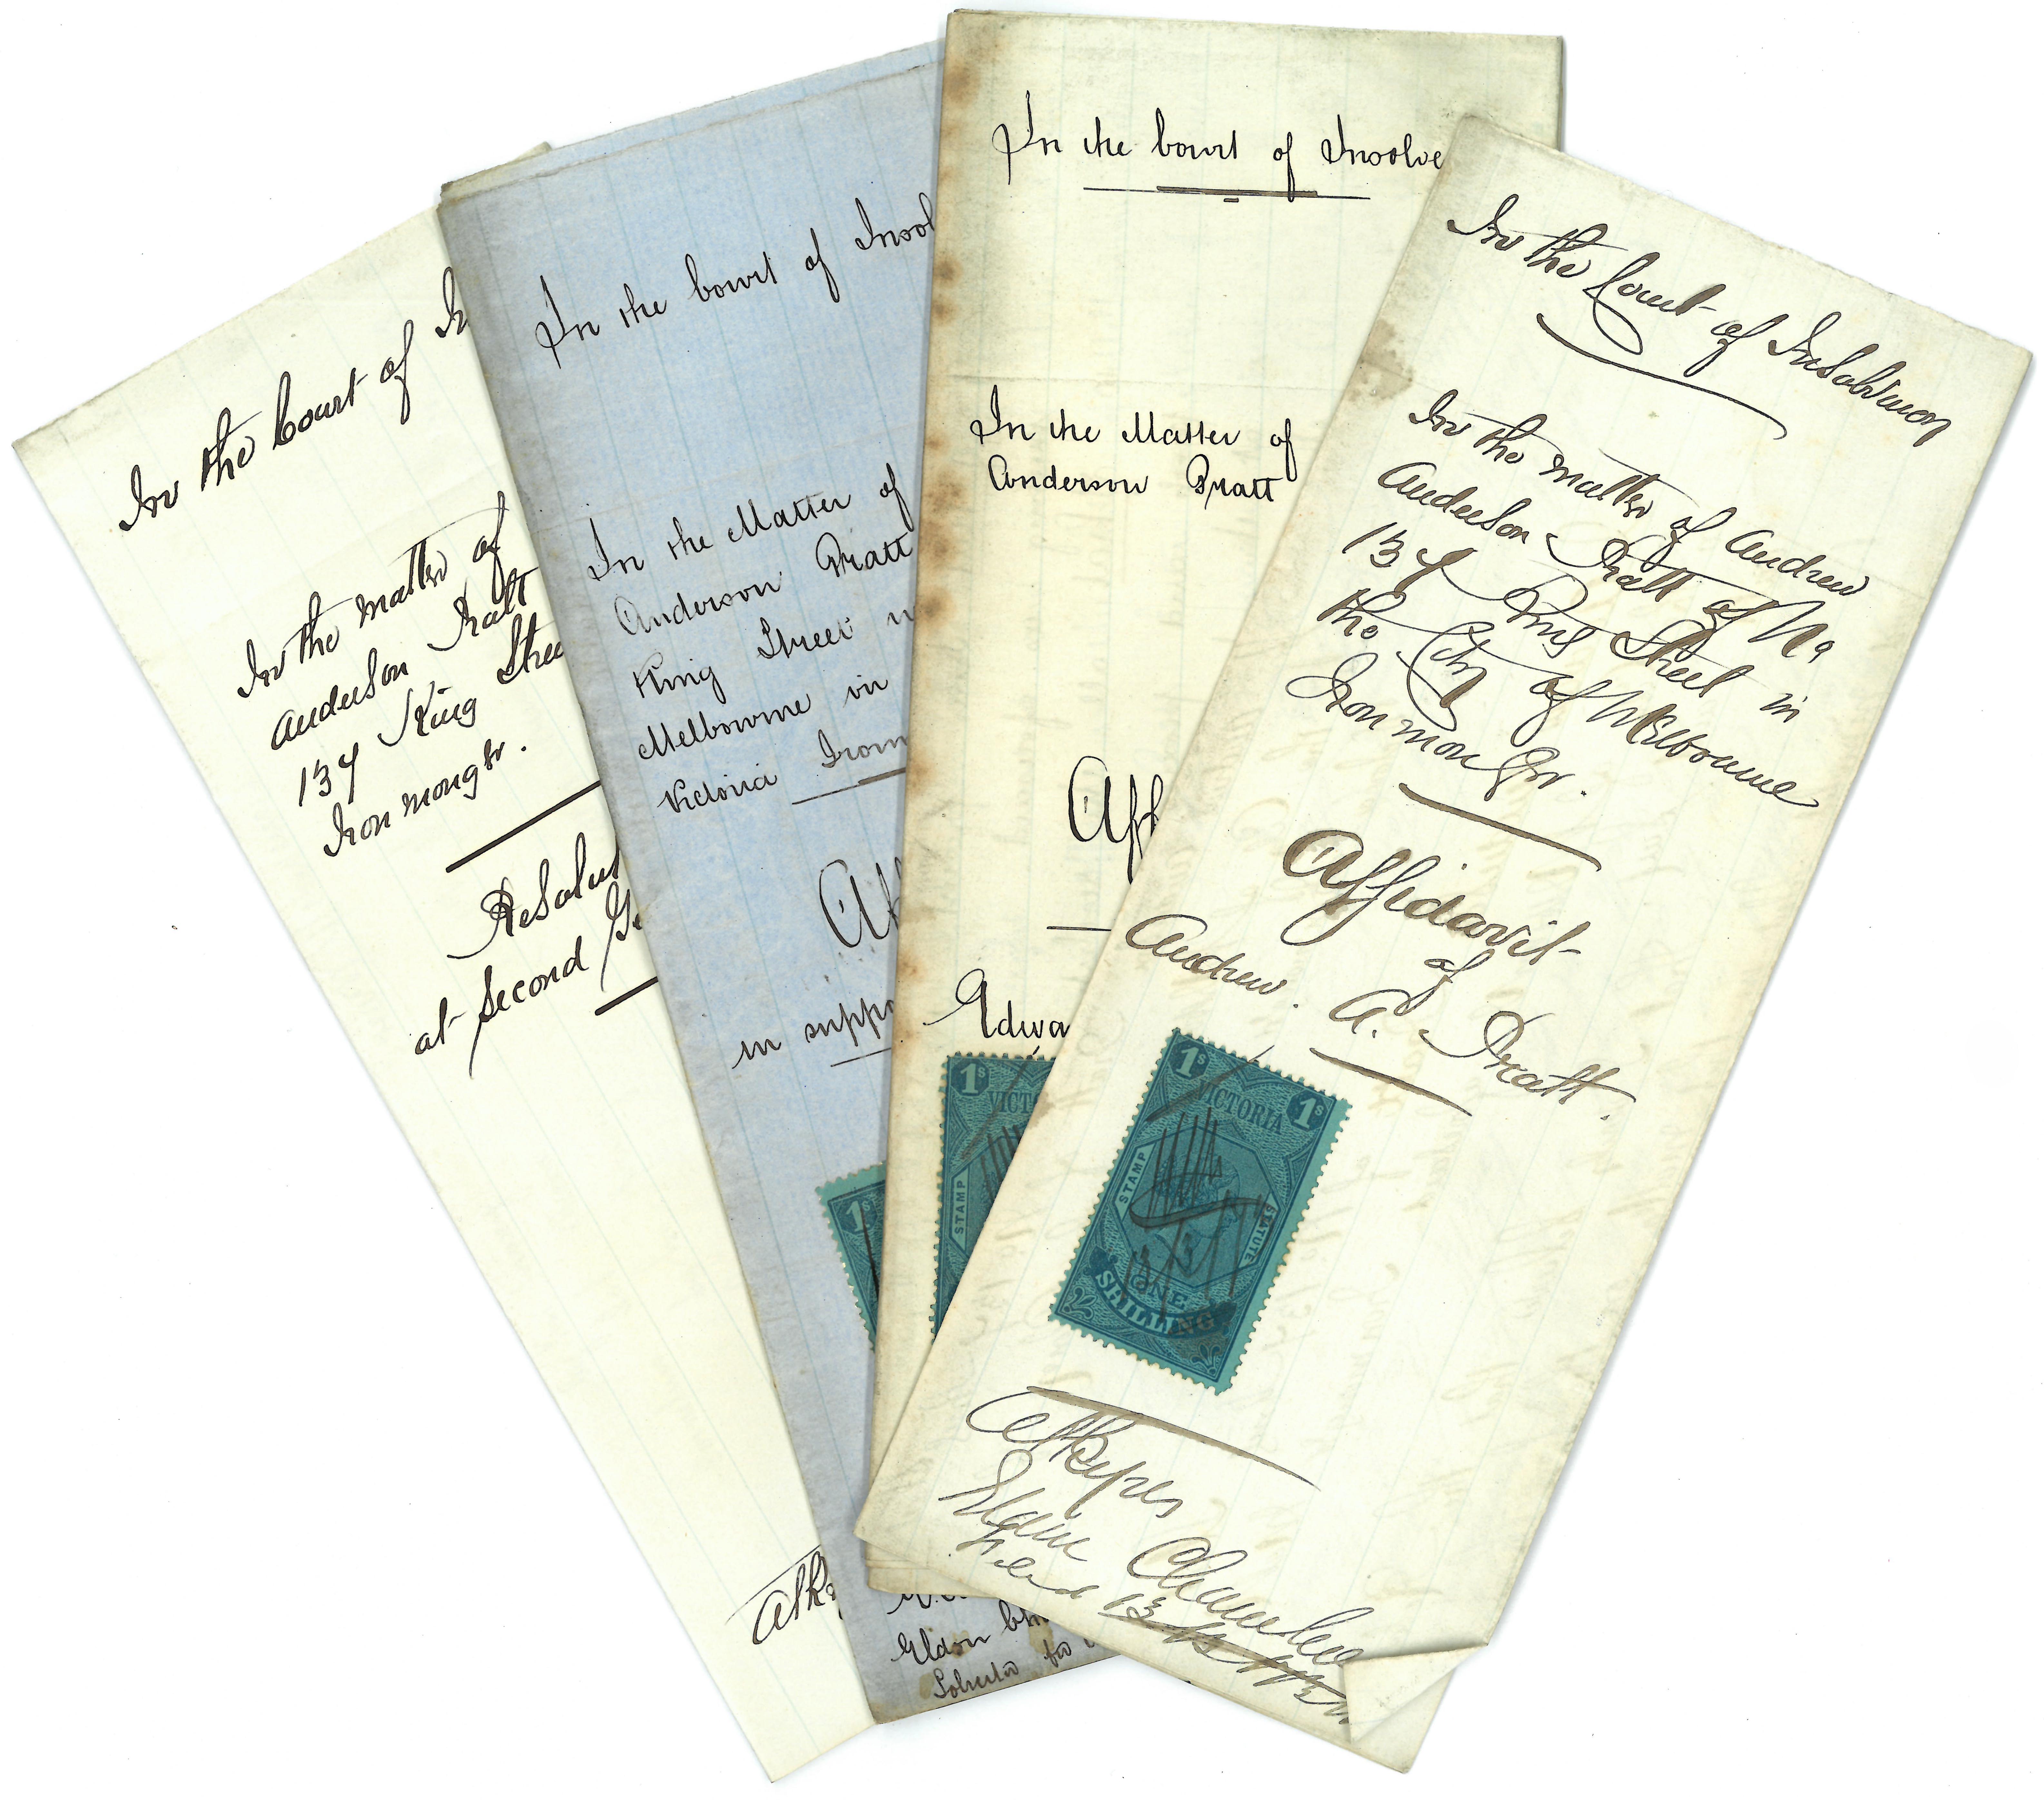 In the Court of In
In the matter of
Anderson Pratt
134 King Stree
Ironmonger.
Resolut
at Second Ge
Atk
In the Court of Insol
In the Matter of
Anderson Pratt
King Street
Melbourne in
Victoria Ironm
Aff
in suppo
Eldon Ch
Solicitor for
1s
In the Court of Insolve
In the Matter of
Anderson Pratt
Aff
Edwa
1s
VICTO
STAMP
In the Court of Insolvency
In the matter of Andrew
Anderson Pratt of No
134 King Street in
the City of Melbourne
Ironmonger.
Affidavit
of
Andrew. A. Pratt.
1s VICTORIA 1s
STAMP STATUTE
ONE
SHILLING
Chambers